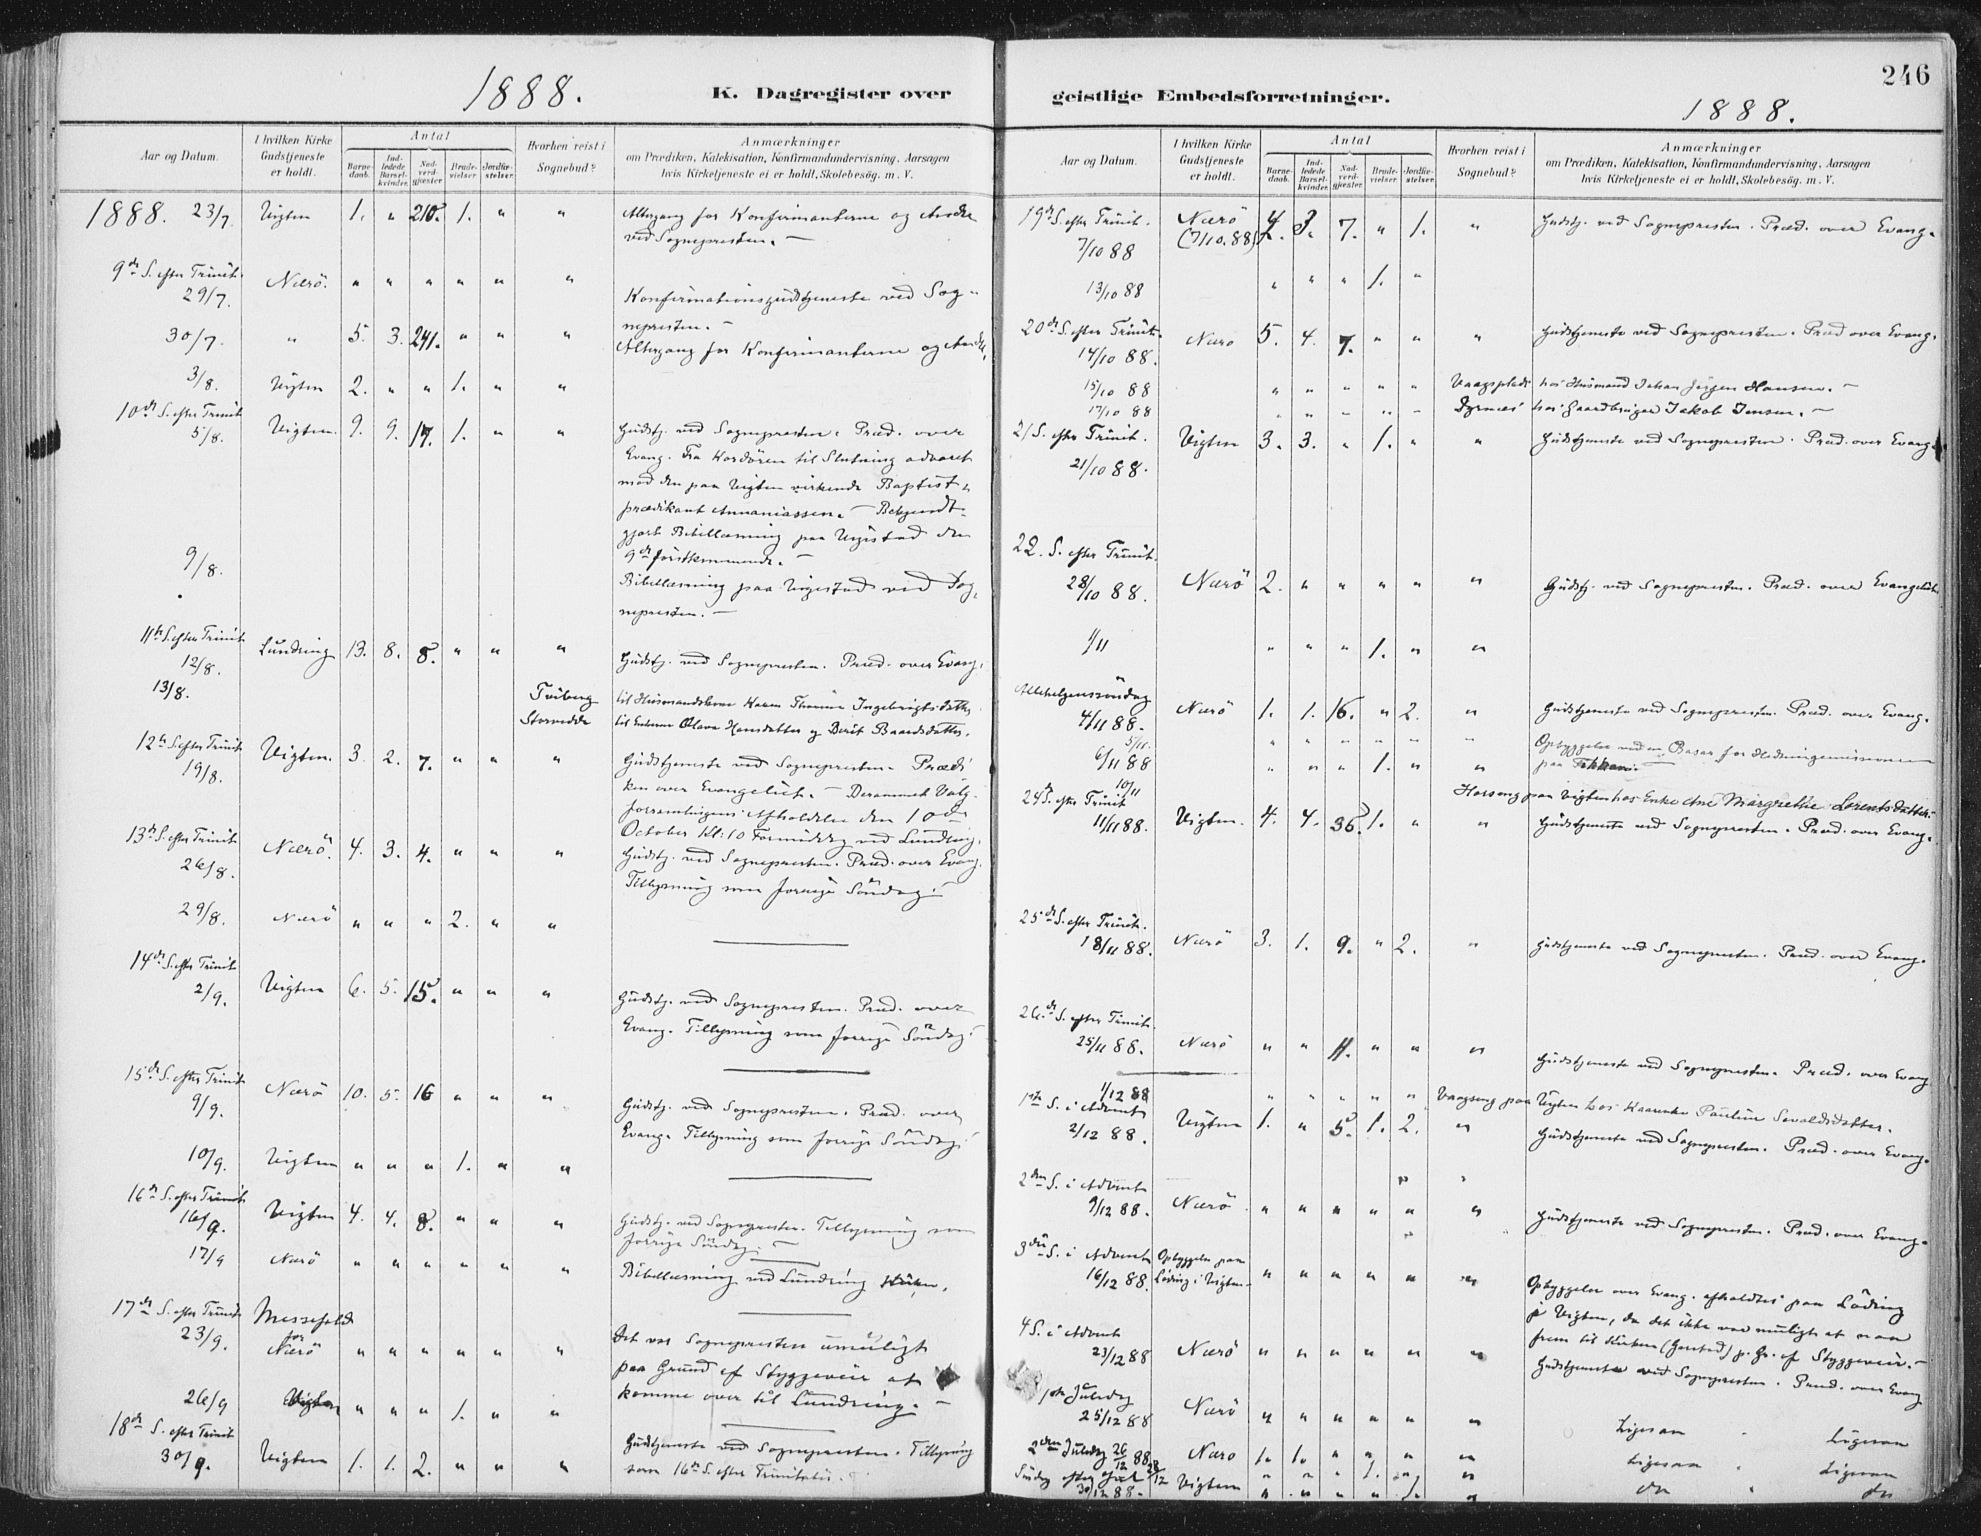 1888.
K. Dagregister over
Aar og Datum.
I hvilken Kirke Gudstjeneste er holdt.
Antal
Barnedaab.
Indledede Barselkvinder.
Nadverdgjester
Brudevielser
Jordfæstelser.
Hvorhen reist i Sognebud?
Anmærkninger
om Prædiken, Katekisation, Konfirmandundervisning, Aarsagen
hvis Kirketjeneste ei er holdt, Skolebesøg. m. V.
1888. 23/7. Vigten 1. " 210. 1. " " Altergang for Konfirmanterne og Andre
ved Sognepresten. —
9de S. efter Trinit. 29/7. Nærö. " " " " " " Konfirmationsgudstjeneste ved Sog-
nepresten. —
30/7. " 5. 3. 241. " " " Altergang for Konfirmanterne og Andre.
3/8. Vigten 2. " " 1. " "
10de S. efter Trinit. 5/8. Vigten. 9. 9. 17. 1. " " Gudstj. ved Sognepresten. Præd. over
Evang. Fra Kordören til Slutning advaret
mod den paa Vigten virkende Baptist-
prædikant Annaniassen. — Bekjendt-
gjort Bibellæsning paa Vigestad den
9de förstkommende. —
9/8. Bibellæsning paa Vigestad ved Sog-
nepresten. —
11te S. efter Trinit. 12/8. Lundring 13. 8. 8. " " " Gudstj. ved Sognepresten. Præd. over Evang.
13/8. til Husmandskone Karen Ingebrigtsdatter
til Enkerne Olava Hansdatter og Berit Baardsdatter.
12te S. efter Trinit. 19/8. Vigten. 3. 2. 7. " " " Gudstjeneste ved Sognepresten. Prædi-
ken over Evangeliet. — Derammet Valg-
forsamlingens Afholdelse den 10de
October Kl: 10 Formiddag ved Lundring.
13de S. efter Trinit. 26/8. Nærö. 4. 3. 4. " " " Gudstj. ved Sognepresten. Præd. over Evang.
Tillysning som forrige Söndag. —
29/8. Nærö " " " 2. " "
14de S. efter Trinit. 2/9. Vigten 6. 5. 15. " " " Gudstj. ved Sognepresten. Præd. over
Evang. Tillysning som forrige Söndag. —
15de S. efter Trinit. 9/9. Nærö 10. 5. 16 " " " Gudstj. ved Sognepresten. Præd. over
Evang. Tillysning som forrige Söndag. —
10/9. Vigten " " " 1. " "
16de S. efter Trinit. 16/9. Vigten 4. 4. 8. " " " Gudstj. ved Sognepresten. Tillysning som
forrige Söndag. —
17/9 Nærö " " " " " " Bibellæsning ved Lundring
17de S. efter Trinit. 23/9. Messefald for Nærö " " " " " " Det var Sognepresten umuligt
paa Grund af Styggeveir at
komme over til Lundring. —
26/9 Vigten " " " 1. " "
18de S. efter Trinit. 30/9. Vigten 1. 1. 2. " " " Gudstjeneste ved Sognepresten. Tillysning
som 16de S. efter Trinitatis.
geistlige Embedsforretninger.
246
1888.
Aar og Datum.
I hvilken Kirke Gudstjeneste er holdt.
Antal
Barnedaab.
Indledede Barselkvinder.
Nadverdgjester
Brudevielser.
Jordfæstelser.
Hvorhen reist i Sognebud?
Anmærkninger
om Prædiken, Katekisation, Konfirmandundervisning, Aarsagen
hvis Kirketjeneste ei er holdt, Skolebesøg. m. V.
19de S. efter Trinit. 7/10 88 Nærö (7/10.88) 4. 3. 7. " 1. " Gudstj. ved Sognepresten. Præd. over Evang.
13/10 88 " " " 1. "
20de S. efter Trinit. 14/10 88. Nærö 5. 4. 7. " " " Gudstjeneste ved Sognepresten. Præd over Evang.
15/10 88 " " " " " hos Husmand Johan Jörgen Hansen. —
17/10 88 " " " " " hos Gaardbruger Jakob Jensen. —
21 S. efter Trinit. 21/10 88. Vigten 3. 3. " 1. " " Gudstjeneste ved Sognepresten. Præd. over Evang.
22. S. efter Trinit. 28/10 88. Nærö 2. " " " " " Gudstj. ved Sognepresten. Præd. over Evangeliet.
1/11 " " " 1. " "
Allehelgenssöndag 4/11 88. Nærö 1. 1. 16. " 2. " Gudstjeneste ved Sognepresten. Præd. over Evang.
5/11. " " " " " " Opbyggelse ved en Basar for Hedningemissionen
paa
6/11 88 " " " 1. " "
10/11 Horseng paa Vigten hos Enke Ane Margrethe Lorentsdatter.
24de S. efter Trinit 11/11 88. Vigten. 4. 4. 36. 1. " " Gudstjeneste ved Sognepresten. Præd. over Evang.
25de S. efter Trinit. 18/11 88. Nærö 3. 1. 9. " 2. " Gudstjeneste ved Sognepresten. Præd. over Evang.
26de S. efter Trinit. 25/11 88. Nærö " " 11. " " " Gudstjeneste ved Sognepresten. Præd. over Evang.
1/12 88 " " " " " paa Vigten hos Pauline Sevaldsdatter.
1ste S. i Advent 2/12 88. Vigten 1. " 5. 1. 2. " Gudstjeneste ved Sognepresten. Præd. over Evang.
2den S. i Advent 9/12 88. Nærö " " " " " " Gudstjeneste ved Sognepresten. Præd. over Evang.
3die S. i Advent 16/12 88. Opbyggelse paa Löding i Vigten " " " " " " Opbyggelse over Evang. afholdtes paa Löding
i Vigten, da det ikke var muligt at naa
frem til Kirken (Garstad) p. Gr. af Styggeveir. —
4 S. i Advent 23/12 88 Nærö " " " " " " Gudstjeneste ved Sognepresten. Præd. over Evang
1ste Juledag 25/12 88 Nærö " " " " " " Ligesaa Ligesaa
2den Juledag 26/12 88. Nærö 1. 1. " " " " Ligesaa Ligesaa
28/12 " " " 1. " "
Söndag efter Jul 30/12 88. Vigten " " " " 1. " do do